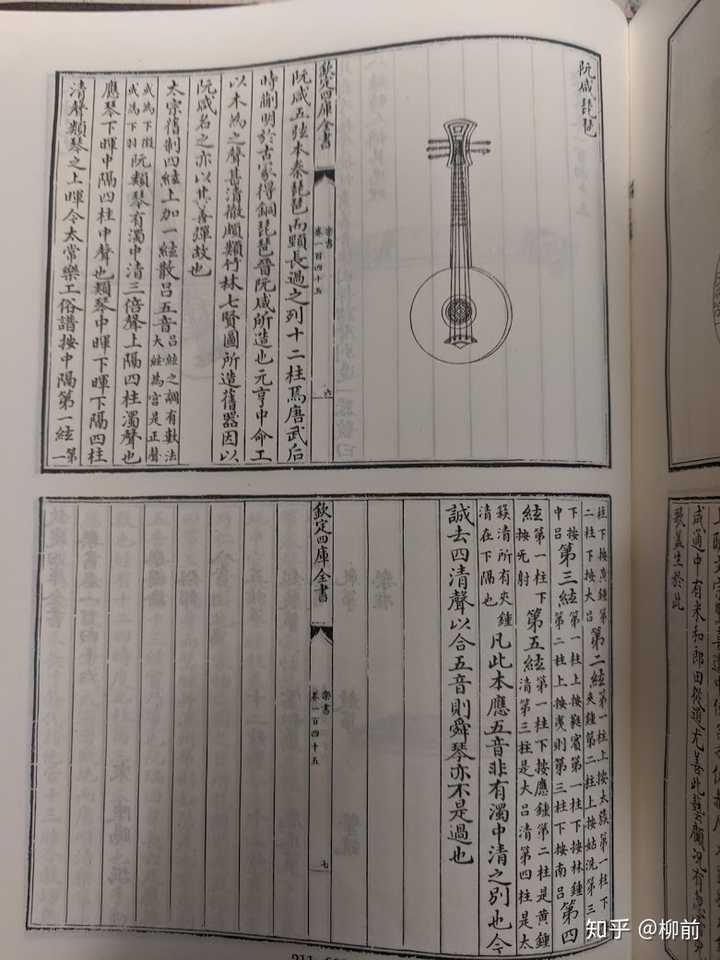 阮咸琵琶
欽定四庫全書
樂書
卷一百四十五
六
阮咸五弦本秦琵琶而頸長過之列十二柱焉唐武后
時蒯明於古冢得銅琵琶晉阮咸所造也元亨中命工
以木為之聲甚清徹頗類竹林七賢圖所造舊器因以
阮咸名之亦以其善彈故也
太宗舊制四絃上加一絃散呂五音呂絃之調有數法大絃為宮是正聲
或為下徵或為下羽阮類琴有濁中清三倍聲上隔四柱濁聲也
應琴下暉中隔四柱中聲也類琴中暉下暉下隔四柱
清聲類琴之上暉今太常樂工俗譜按中隔第一絃第一
柱下按黃鍾第二柱下按大呂第二絃第一柱上按太簇第一柱下夾鍾第二柱上按姑洗第三
下按中呂第三絃第一柱上按蕤賓第一柱下按林鍾第二柱上按夷則第三柱下按南呂第四
絃第一柱下按無射第五絃第一柱下按應鍾第二柱是黃鍾清第三柱是大呂清第四柱是太
簇清所有夾鍾清在下隔也凡此本應五音非有濁中清之別也今
誠去四清聲以合五音則舜琴亦不是過也
欽定四庫全書
樂書
卷一百四十五
七
咸通中有米和郎田從道尤善此藝顧況有
歌蓋生於此
知乎 @柳前